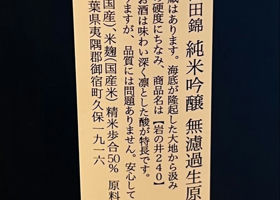 田錦 純米吟醸 無濾過生原
蔵はあります。海底が隆起した大地から汲み
硬度にちなみ、商品名は【岩の井240】
お酒は味わい深く凛とした酸が特長です。
ますが、品質には問題ありません。安心して
国産)米麹(国産米) 精米歩合50% 原料
葉県夷隅郡御宿町久保一九一六